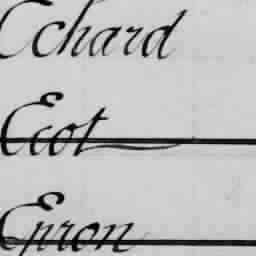 Echard
Ecot
Epron